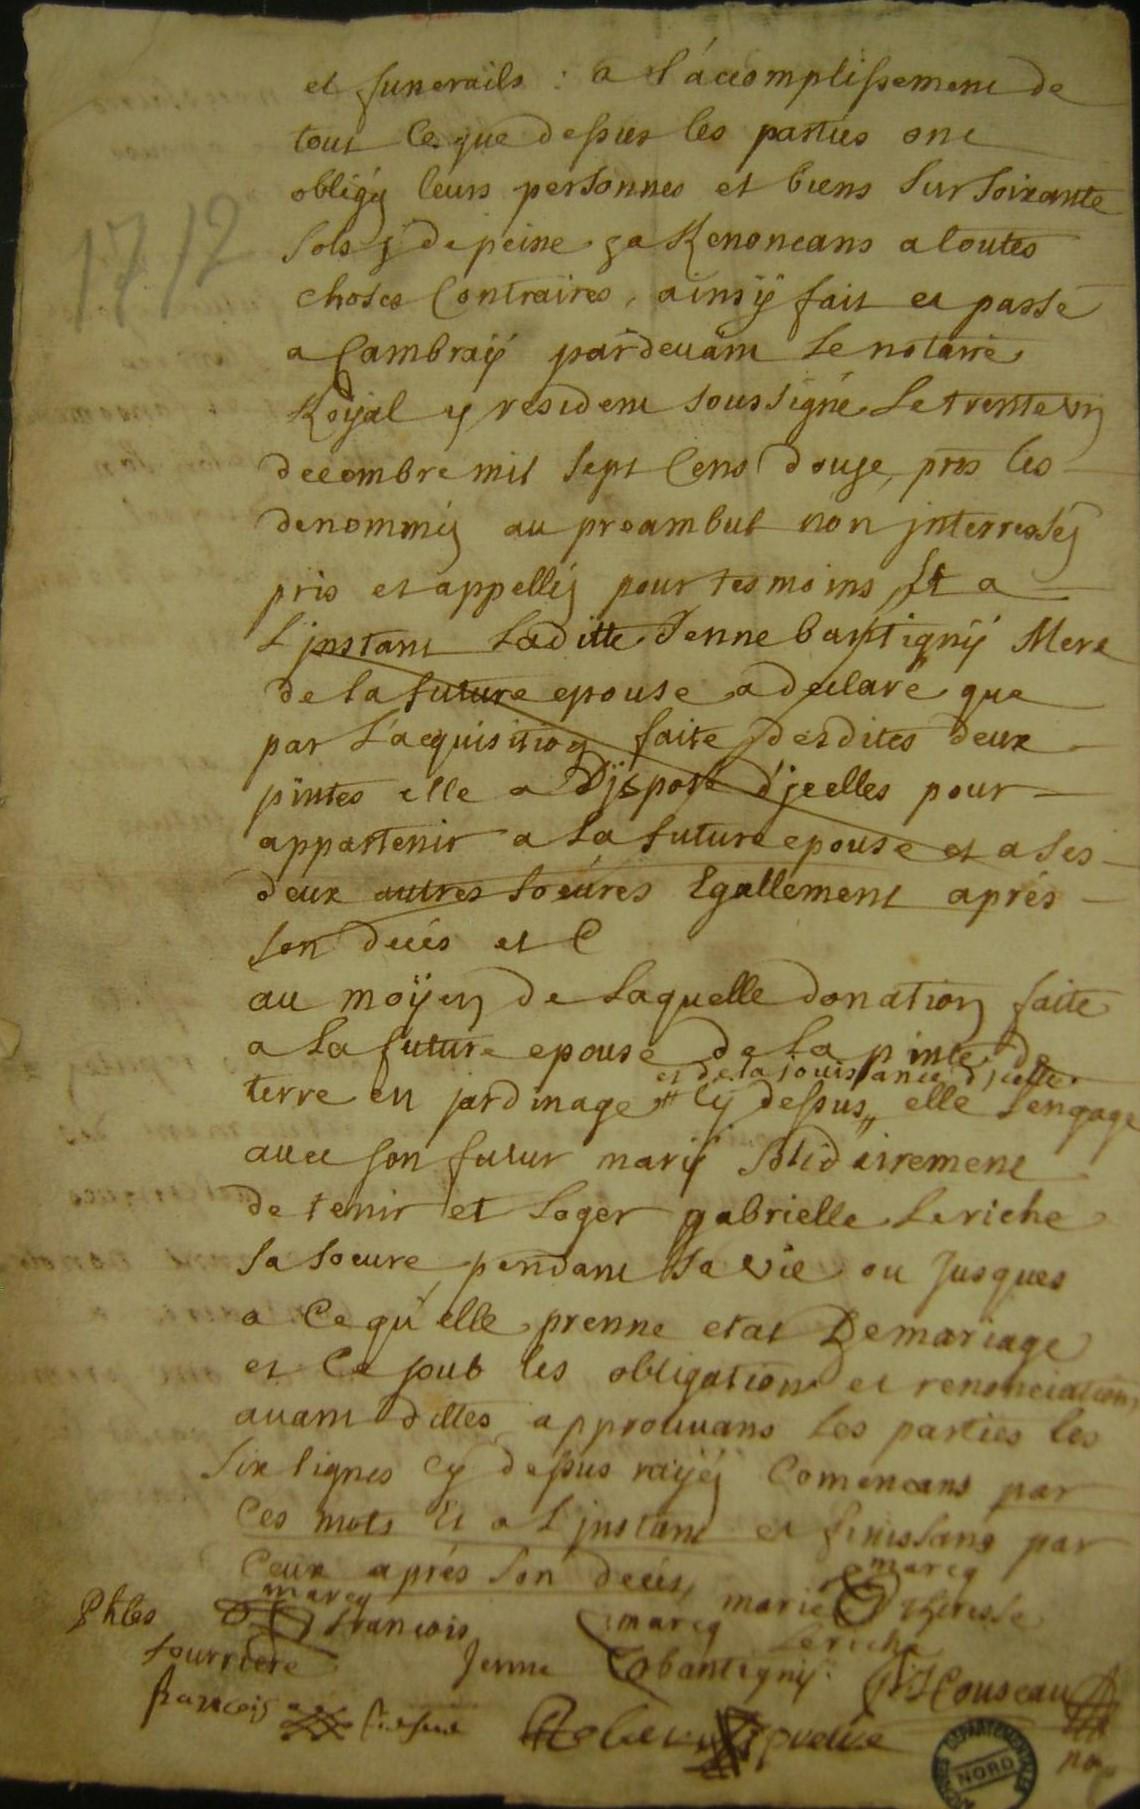 1712
et funerails : a l'accomplissement de
tout ce que dessus les parties ont
obligéz leurs personnes et biens sur soixante
sols z de peine Renoncans a toutes
choses contraires, ainsÿ fait et passé
a Cambraÿ pardevant le notaire
Roÿal y resident soussigné le trente un
decembre mil sept cens douze, pns les
denomméz au preambul non jnterresséz
pris et appelléz pour tesmoins Et a
L'jnstant Laditte Jenne bantignÿ Mere
de la future epouse a declaré que
par L'acquisition faite desdites deux
pintes elle a Dÿsposé d'jcelles pour
appartenir a la future epouse et a ses
deux autres soeures Egallement aprés
son decés et C
au moÿen de Laquelle donation faite
a La future epouse de La pinte de
et de la jouissance d'jcelle
terre en jardinage # cy dessus,, elle s'engage
avec son futur marÿ solidairement
de tenir et Loger gabrielle Leriche
sa soeure pendant sa vie ou Jusques
a Ce qu'elle prenne etat De mariage
et Ce soub les obligations et renonciations
avant dittes approuvans Les parties les
six lignes cy dessus raÿéz Comencans par
Ces mots Et a L'jnstant et finissans par
Ceux aprés son decés,
marcq
marcq
Phles françois
fourriere
marcq
Jenne bantignÿ
marie theresse
Leriche
françois
Houseau
not
ARCHIVES DEPARTEMENTALES
NORD